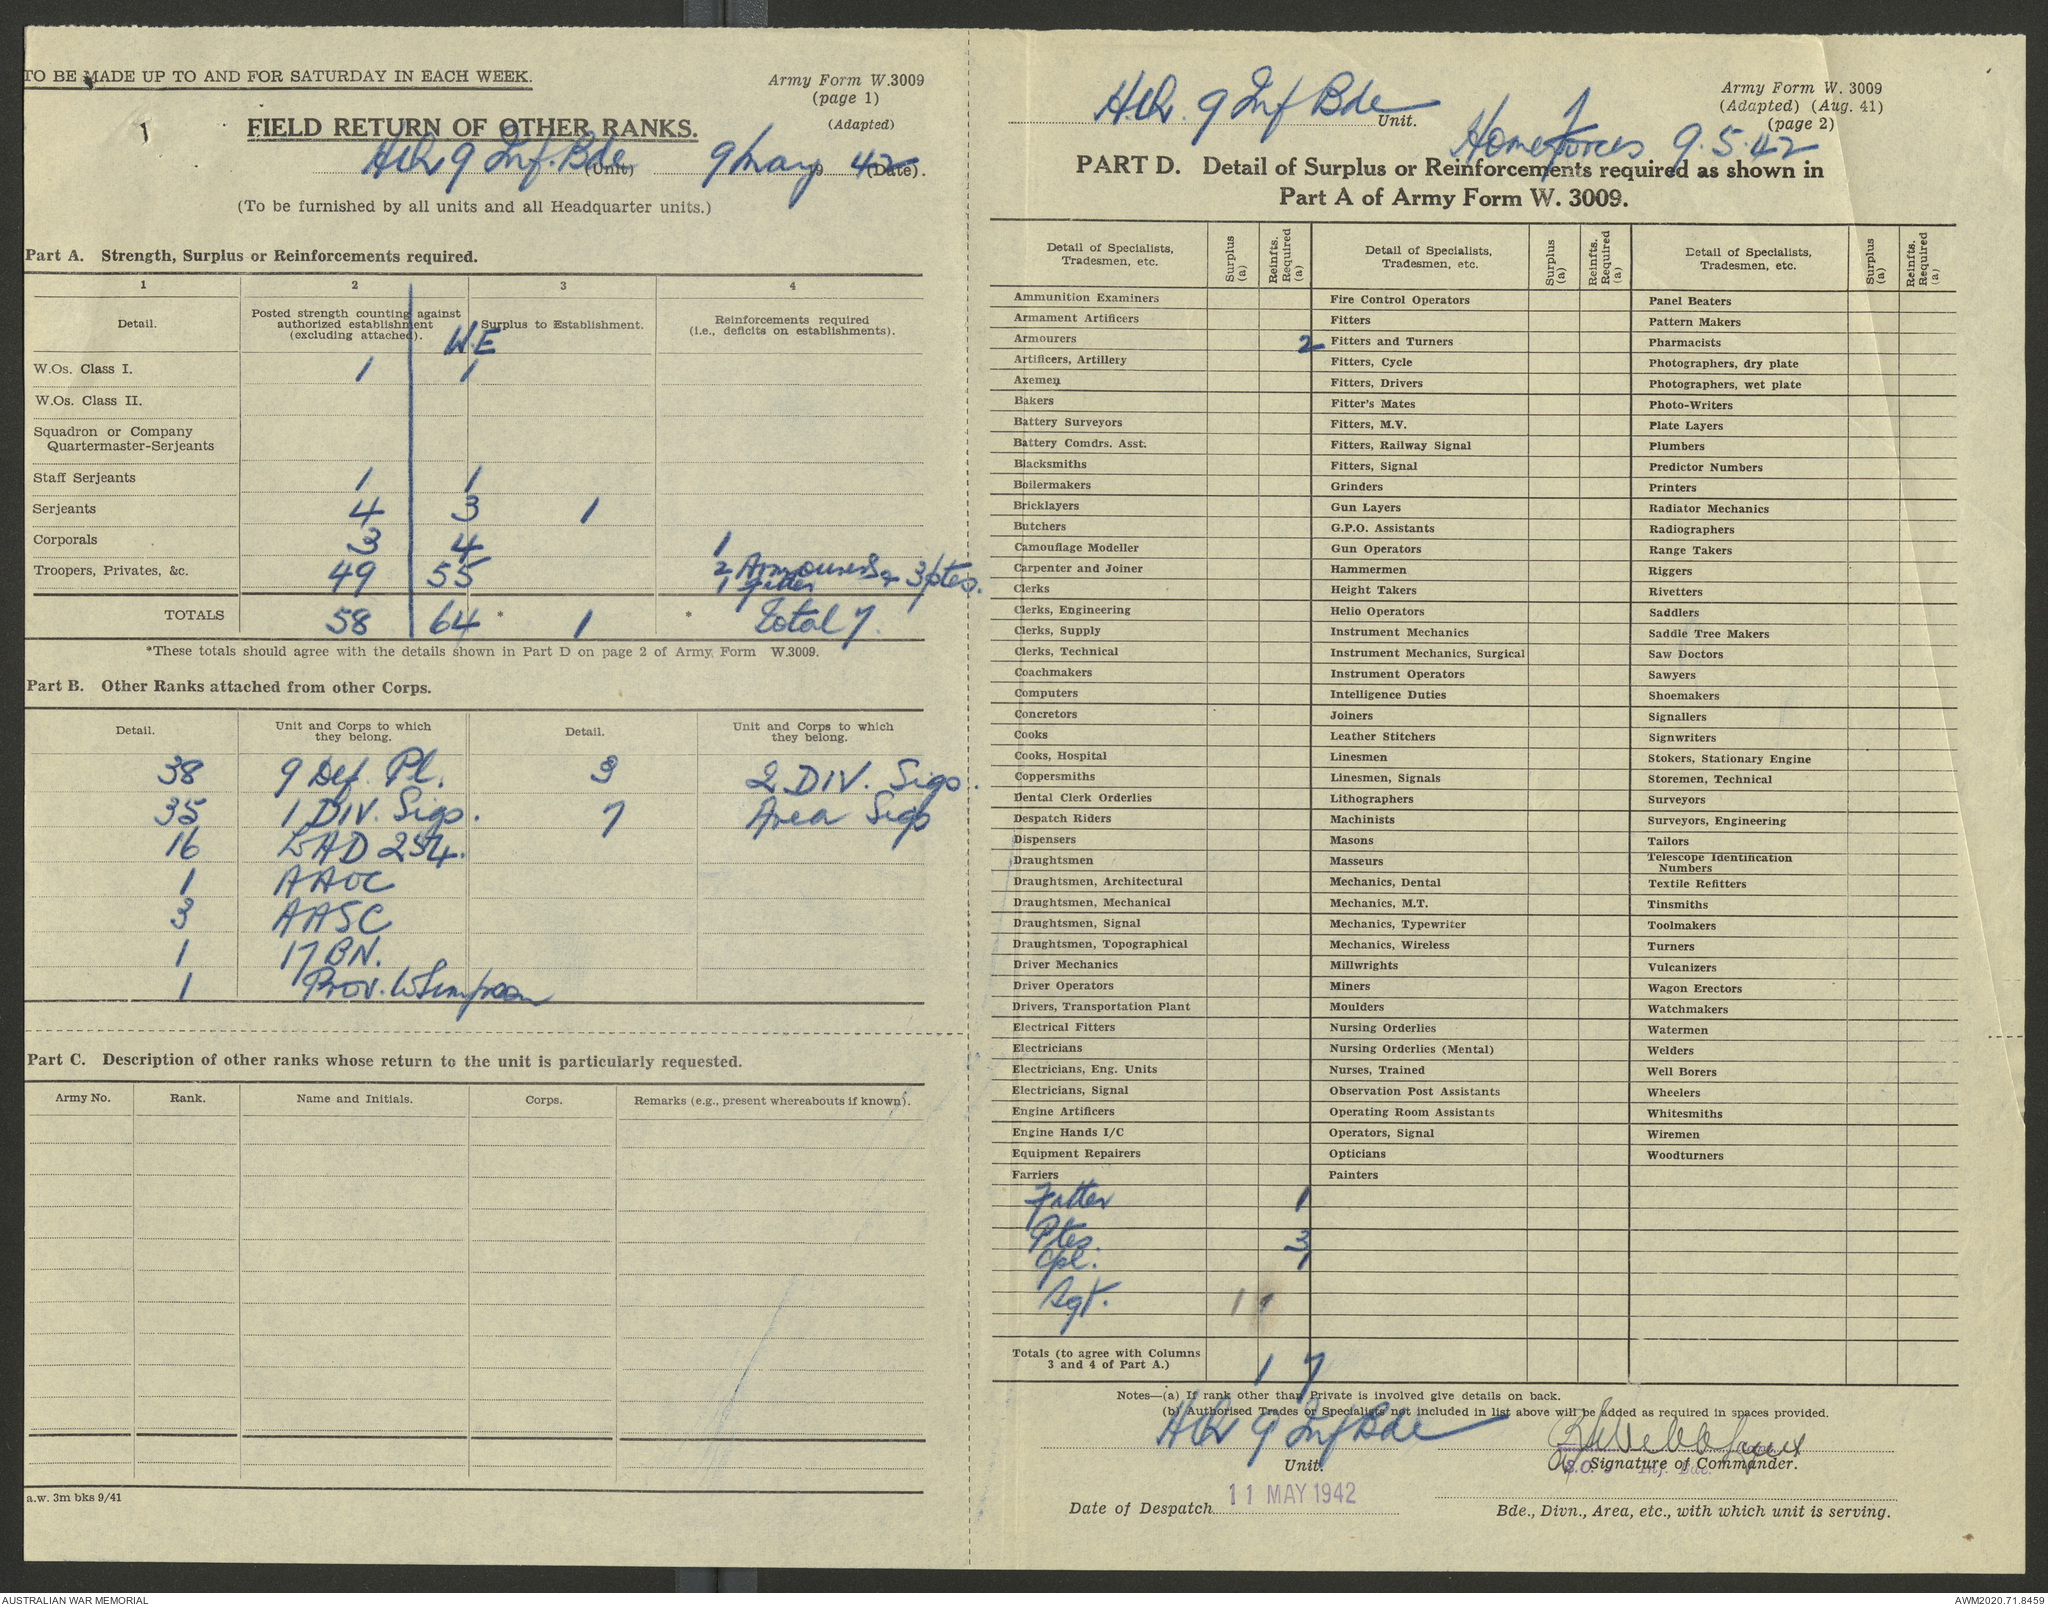 TO BE MADE UP TO AND FOR SATURDAY IN EACH WEEK.
Army Form W.3009
(page 1)
(Adapted)
FIELD RETURN OF OTHER RANKS.
HQ 9 Inf. Bde (Unit) 9 May 19 42 (Date).
(To be furnished by all units and all Headquarter units.)
Part A. Strength, Surplus or Reinforcements required.
1 2 3 4
Detail.
Posted strength counting against authorized establishment (excluding attached).
W.E
Surplus to Establishment.
Reinforcements required (i.e., deficits on establishments).
W.Os. Class I. 1 1
W.Os. Class II.
Squadron or Company
Quartermaster-Serjeants
Staff Serjeants 1 1
Serjeants 4 3 1
Corporals 3 4 1
Troopers, Privates, &c. 49 55 2 Armourers & 3 ptes.
1 fitter
TOTALS 58 64 * 1 * Total 7.
*These totals should agree with the details shown in Part D on page 2 of Army Form W.3009.
Part B. Other Ranks attached from other Corps.
Detail. Unit and Corps to which they belong. Detail. Unit and Corps to which they belong.
38 9 Def. Pl. 3 2 DIV. Sigs.
35 1 DIV. Sigs. 7 Area Sigs
16 LAD 254.
1 AAOC
3 AASC
1 17 BN.
1 Prov.
Part C. Description of other ranks whose return to the unit is particularly requested.
Army No. Rank. Name and Initials. Corps. Remarks (e.g., present whereabouts if known).
a.w. 3m bks 9/41
HQ. 9 Inf Bde Unit.
Army Form W. 3009
(Adapted) (Aug. 41)
(page 2)
Home Forces 9.5.42
PART D. Detail of Surplus or Reinforcements required as shown in
Part A of Army Form W. 3009.
Detail of Specialists, Tradesmen, etc. Surplus (a) Reinfts. Required (a)
Detail of Specialists, Tradesmen, etc. Surplus (a) Reinfts. Required (a)
Detail of Specialists, Tradesmen, etc. Surplus (a) Reinfts. Required (a)
Ammunition Examiners
Armament Artificers
Armourers 2
Artificers, Artillery
Axemen
Bakers
Battery Surveyors
Battery Comdrs. Asst.
Blacksmiths
Boilermakers
Bricklayers
Butchers
Camouflage Modeller
Carpenter and Joiner
Clerks
Clerks, Engineering
Clerks, Supply
Clerks, Technical
Coachmakers
Computers
Concretors
Cooks
Cooks, Hospital
Coppersmiths
Dental Clerk Orderlies
Despatch Riders
Dispensers
Draughtsmen
Draughtsmen, Architectural
Draughtsmen, Mechanical
Draughtsmen, Signal
Draughtsmen, Topographical
Driver Mechanics
Driver Operators
Drivers, Transportation Plant
Electrical Fitters
Electricians
Electricians, Eng. Units
Electricians, Signal
Engine Artificers
Engine Hands I/C
Equipment Repairers
Farriers
Fitter 1
Ptes. 3
Cpl. 1
Sgt. 1
Fire Control Operators
Fitters
Fitters and Turners
Fitters, Cycle
Fitters, Drivers
Fitter's Mates
Fitters, M.V.
Fitters, Railway Signal
Fitters, Signal
Grinders
Gun Layers
G.P.O. Assistants
Gun Operators
Hammermen
Height Takers
Helio Operators
Instrument Mechanics
Instrument Mechanics, Surgical
Instrument Operators
Intelligence Duties
Joiners
Leather Stitchers
Linesmen
Linesmen, Signals
Lithographers
Machinists
Masons
Masseurs
Mechanics, Dental
Mechanics, M.T.
Mechanics, Typewriter
Mechanics, Wireless
Millwrights
Miners
Moulders
Nursing Orderlies
Nursing Orderlies (Mental)
Nurses, Trained
Observation Post Assistants
Operating Room Assistants
Operators, Signal
Opticians
Painters
Panel Beaters
Pattern Makers
Pharmacists
Photographers, dry plate
Photographers, wet plate
Photo-Writers
Plate Layers
Plumbers
Predictor Numbers
Printers
Radiator Mechanics
Radiographers
Range Takers
Riggers
Rivetters
Saddlers
Saddle Tree Makers
Saw Doctors
Sawyers
Shoemakers
Signallers
Signwriters
Stokers, Stationary Engine
Storemen, Technical
Surveyors
Surveyors, Engineering
Tailors
Telescope Identification
Numbers
Textile Refitters
Tinsmiths
Toolmakers
Turners
Vulcanizers
Wagon Erectors
Watchmakers
Watermen
Welders
Well Borers
Wheelers
Whitesmiths
Wiremen
Woodturners
Totals (to agree with Columns
3 and 4 of Part A.) 1 7
Notes—(a) If rank other than Private is involved give details on back.
(b) Authorised Trades or Specialists not included in list above will be added as required in spaces provided.
HQ 9 Inf Bde
Unit.
Signature of Commander.
Date of Despatch 11 MAY 1942
Bde., Divn., Area, etc., with which unit is serving.
AUSTRALIAN WAR MEMORIAL
AWM2020.71.8459